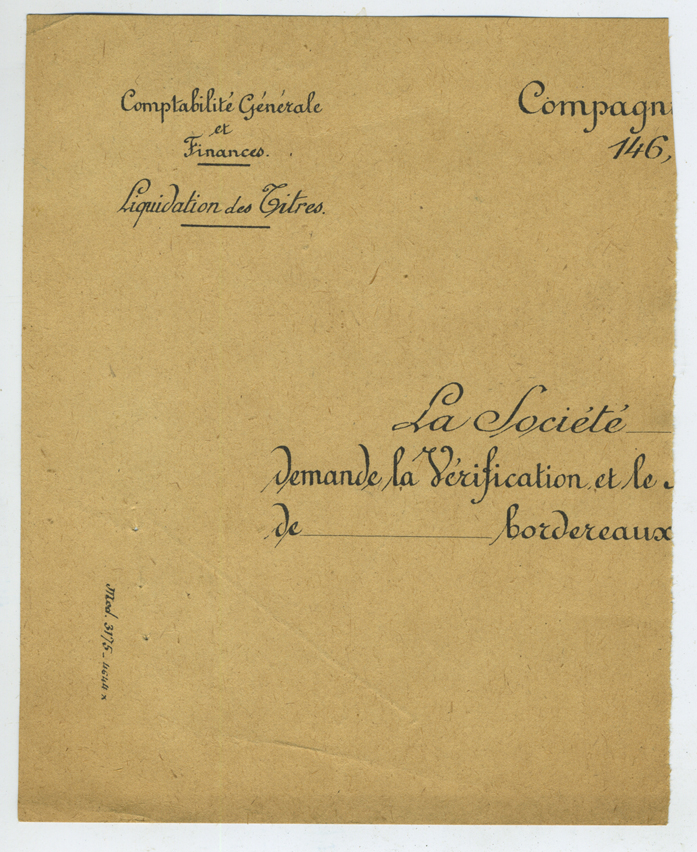 Comptabilité Générale
et
Finances.
Liquidation des Titres.
Compagn
146,
La Société
demande la Vérification et le
de bordereaux
Mod. 3175